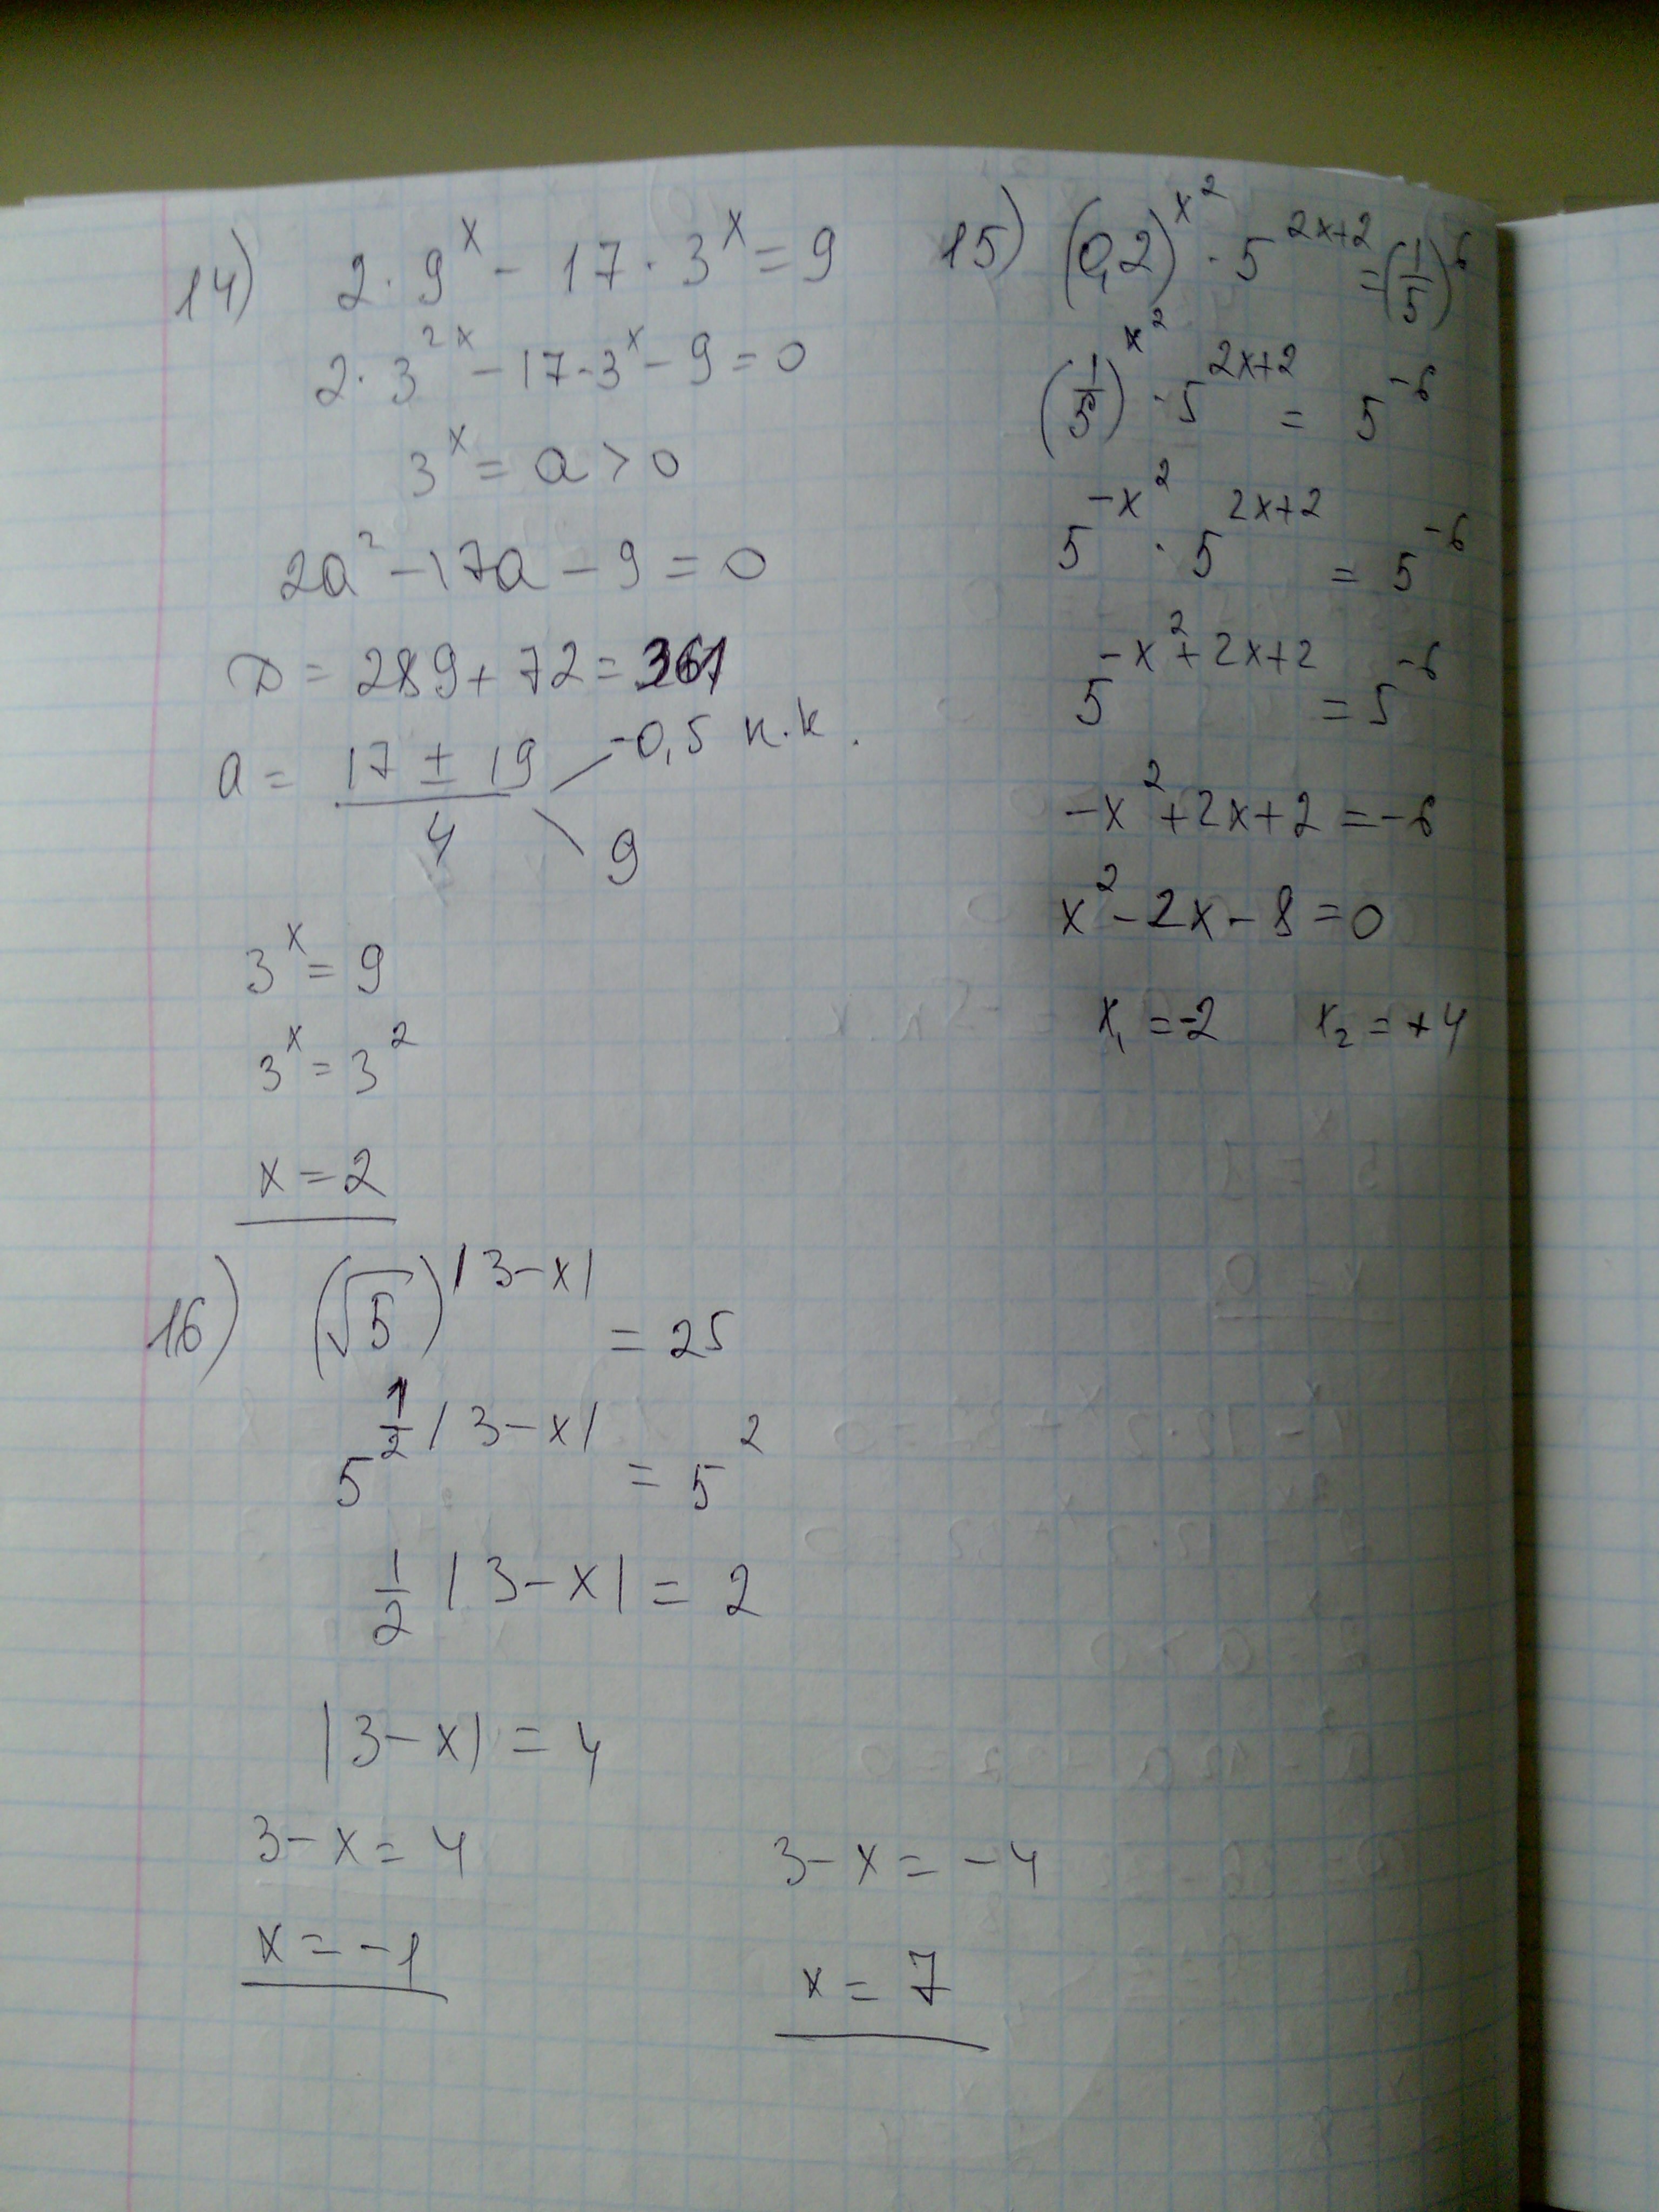 14) 2·9^x - 17·3^x = 9
2·3^{2x} - 17·3^x - 9 = 0
3^x = a > 0
2a² - 17a - 9 = 0
D = 289 + 72 = 361
a = \frac{17 ± 19}{4}
-0,5 н.к.
9
3^x = 9
3^x = 3^2
x = 2
15) (0,2)^{x²} · 5^{2x+2} = (\frac{1}{5})^6
(\frac{1}{5})^{x²} · 5^{2x+2} = 5^{-6}
5^{-x²} · 5^{2x+2} = 5^{-6}
5^{-x²+2x+2} = 5^{-6}
-x² + 2x + 2 = -6
x² - 2x - 8 = 0
x₁ = -2 x₂ = +4
16) (√5)^{|3-x|} = 25
5^{\frac{1}{2}|3-x|} = 5^2
\frac{1}{2} |3-x| = 2
|3-x| = 4
3-x = 4 3-x = -4
x = -1 x = 7